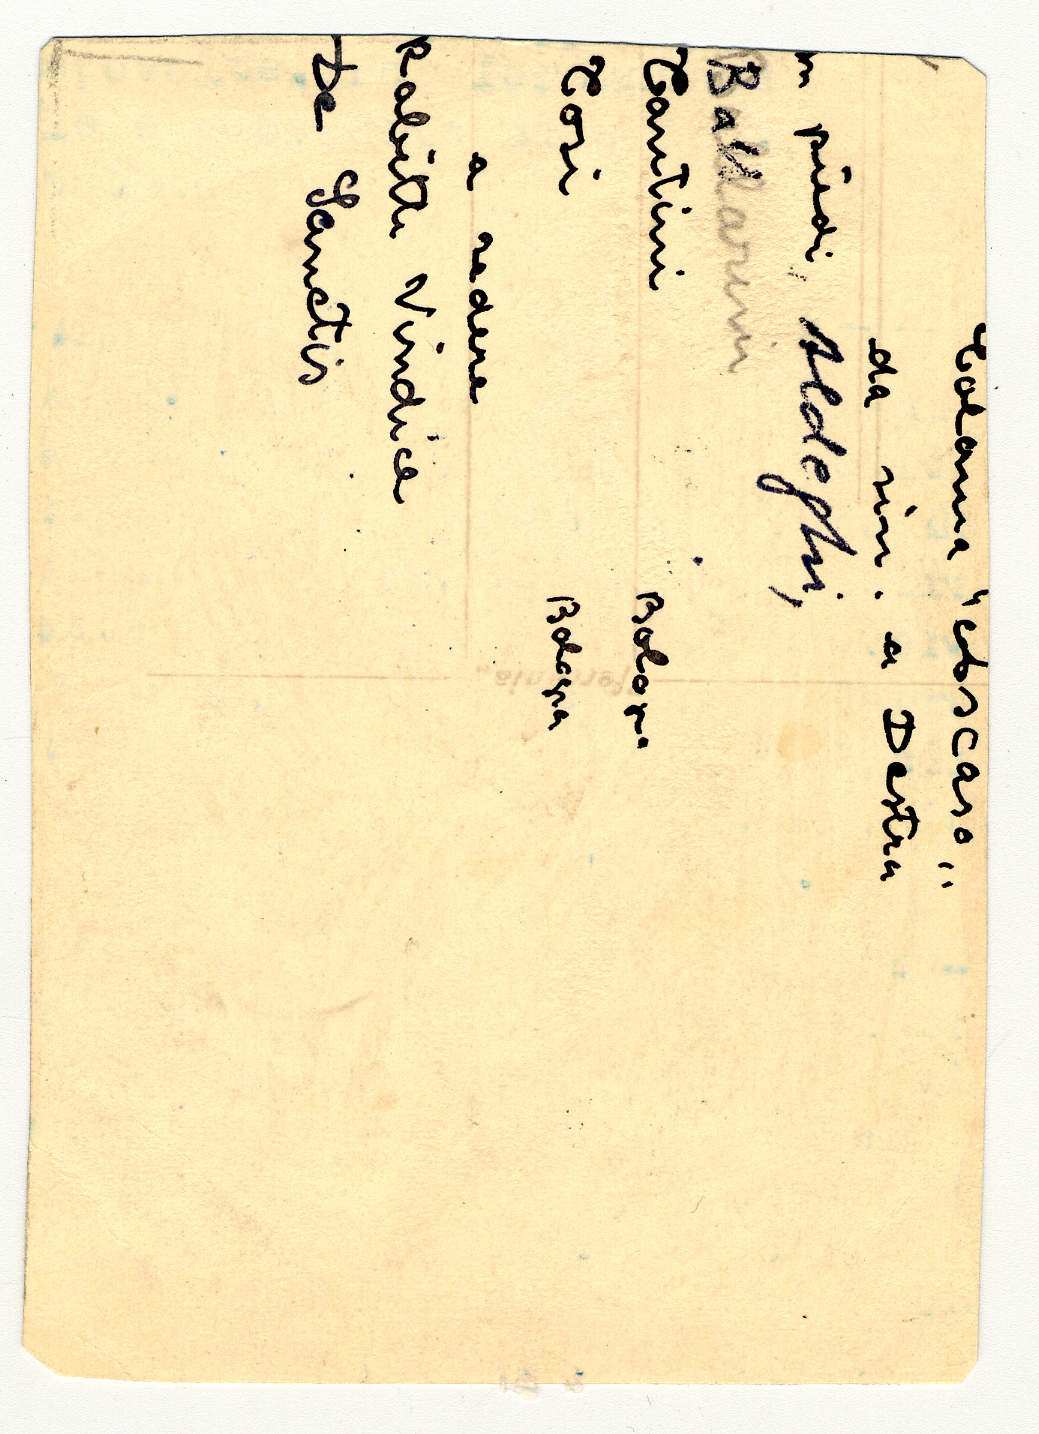 Colonia "Costa
da sin. a Destra
in piedi, Aldeghi,
Ballarini
Tantini Bologna
Tosi Bologna
a sedere
Rabitti Vindice
De Sanctis